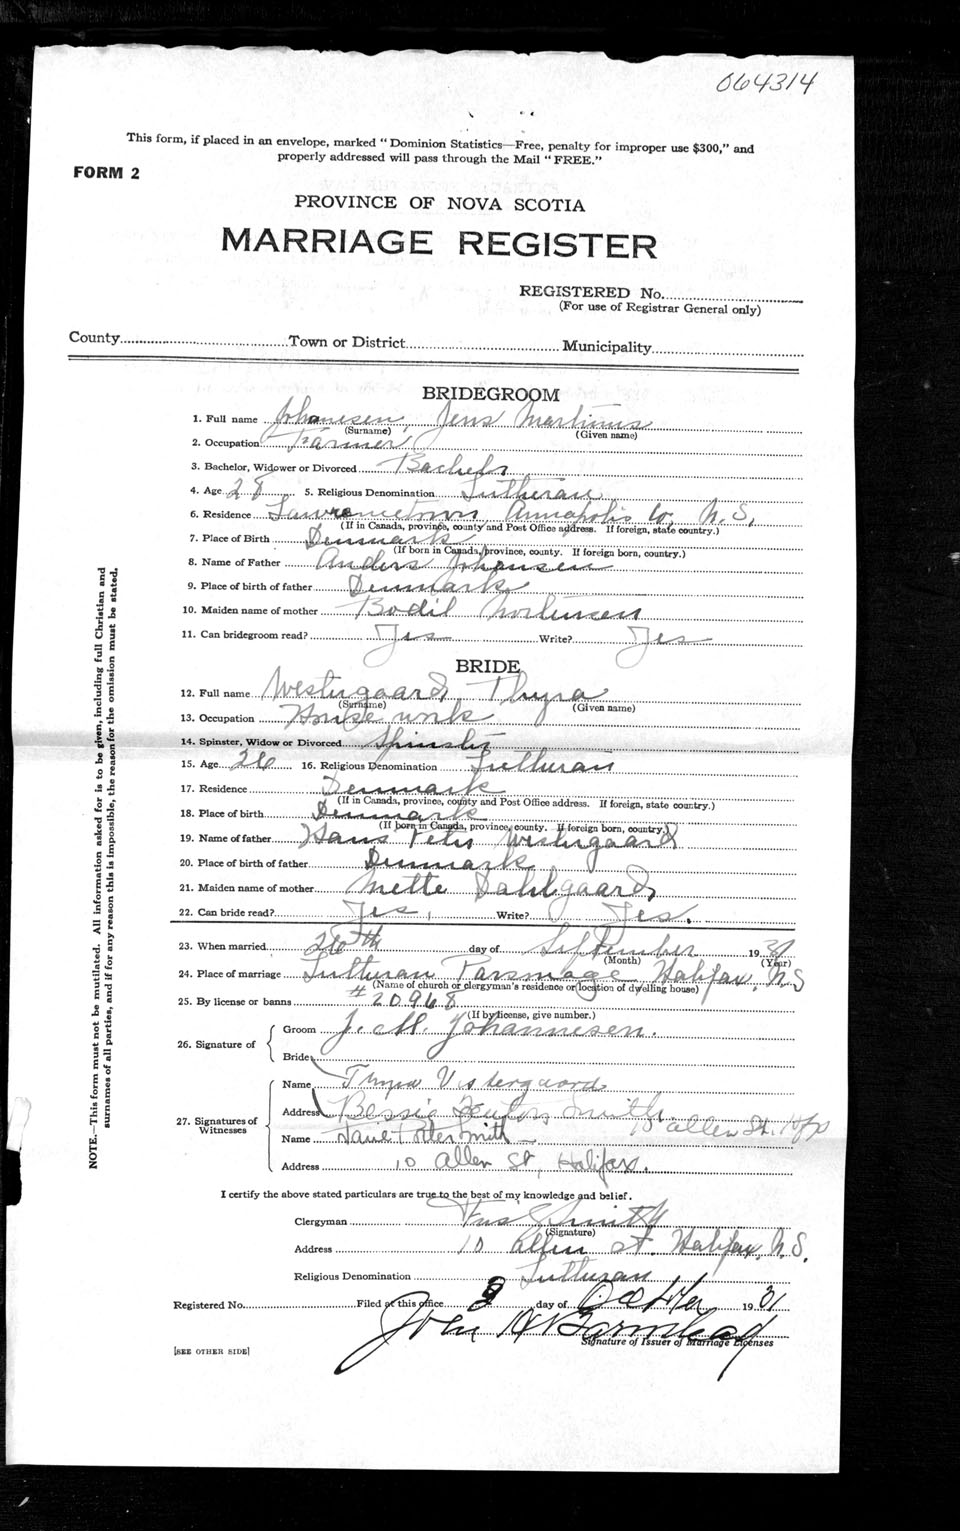 064314
This form, if placed in an envelope, marked "Dominion Statistics—Free, penalty for improper use $300," and
properly addressed will pass through the Mail "FREE."
FORM 2
PROVINCE OF NOVA SCOTIA
MARRIAGE REGISTER
REGISTERED No.
(For use of Registrar General only)
County Town or District Municipality
BRIDEGROOM
1. Full name Johannesen, Jens Martinus
(Surname) (Given name)
2. Occupation Farmer
3. Bachelor, Widower or Divorced Bachelor
4. Age 28 5. Religious Denomination Lutheran
6. Residence Lawrencetown, Annapolis Co, N.S.
(If in Canada, province, county and Post Office address. If foreign, state country.)
7. Place of Birth Denmark
(If born in Canada, province, county. If foreign born, country.)
8. Name of Father Anders Johansen
9. Place of birth of father Denmark
10. Maiden name of mother Bodil Mortensen
11. Can bridegroom read? Yes Write? Yes
BRIDE
12. Full name Westergaard, Thyra
(Surname) (Given name)
13. Occupation House work
14. Spinster, Widow or Divorced Spinster
15. Age 26 16. Religious Denomination Lutheran
17. Residence Denmark
(If in Canada, province, county and Post Office address. If foreign, state country.)
18. Place of birth Denmark
(If born in Canada, province, county. If foreign born, country.)
19. Name of father Hans Peter Westergaard
20. Place of birth of father Denmark
21. Maiden name of mother Mette Dahlgaard
22. Can bride read? Yes Write? Yes.
23. When married 26th day of September 1931
(Month) (Year)
24. Place of marriage Lutheran Parsonage Halifax, N.S
(Name of church or clergyman's residence or location of dwelling house)
25. By license or banns #20968
(If by license, give number.)
26. Signature of
Groom J. M. Johannesen.
Bride
27. Signatures of Witnesses
Name Thyra Vestergaard
Address Bessie Smith 10 Allen St. Hfx
Name Porter Smith
Address 10 Allen St, Halifax.
I certify the above stated particulars are true to the best of my knowledge and belief.
Clergyman Smith
(Signature)
Address 10 Allen St. Halifax, N.S.
Religious Denomination Lutheran
Registered No. Filed at this office day of October 1931
John
Signature of Issuer of Marriage Licenses
[SEE OTHER SIDE]
NOTE.—This form must not be mutilated. All information asked for is to be given, including full Christian and
surnames of all parties, and if for any reason this is impossible, the reason for the omission must be stated.